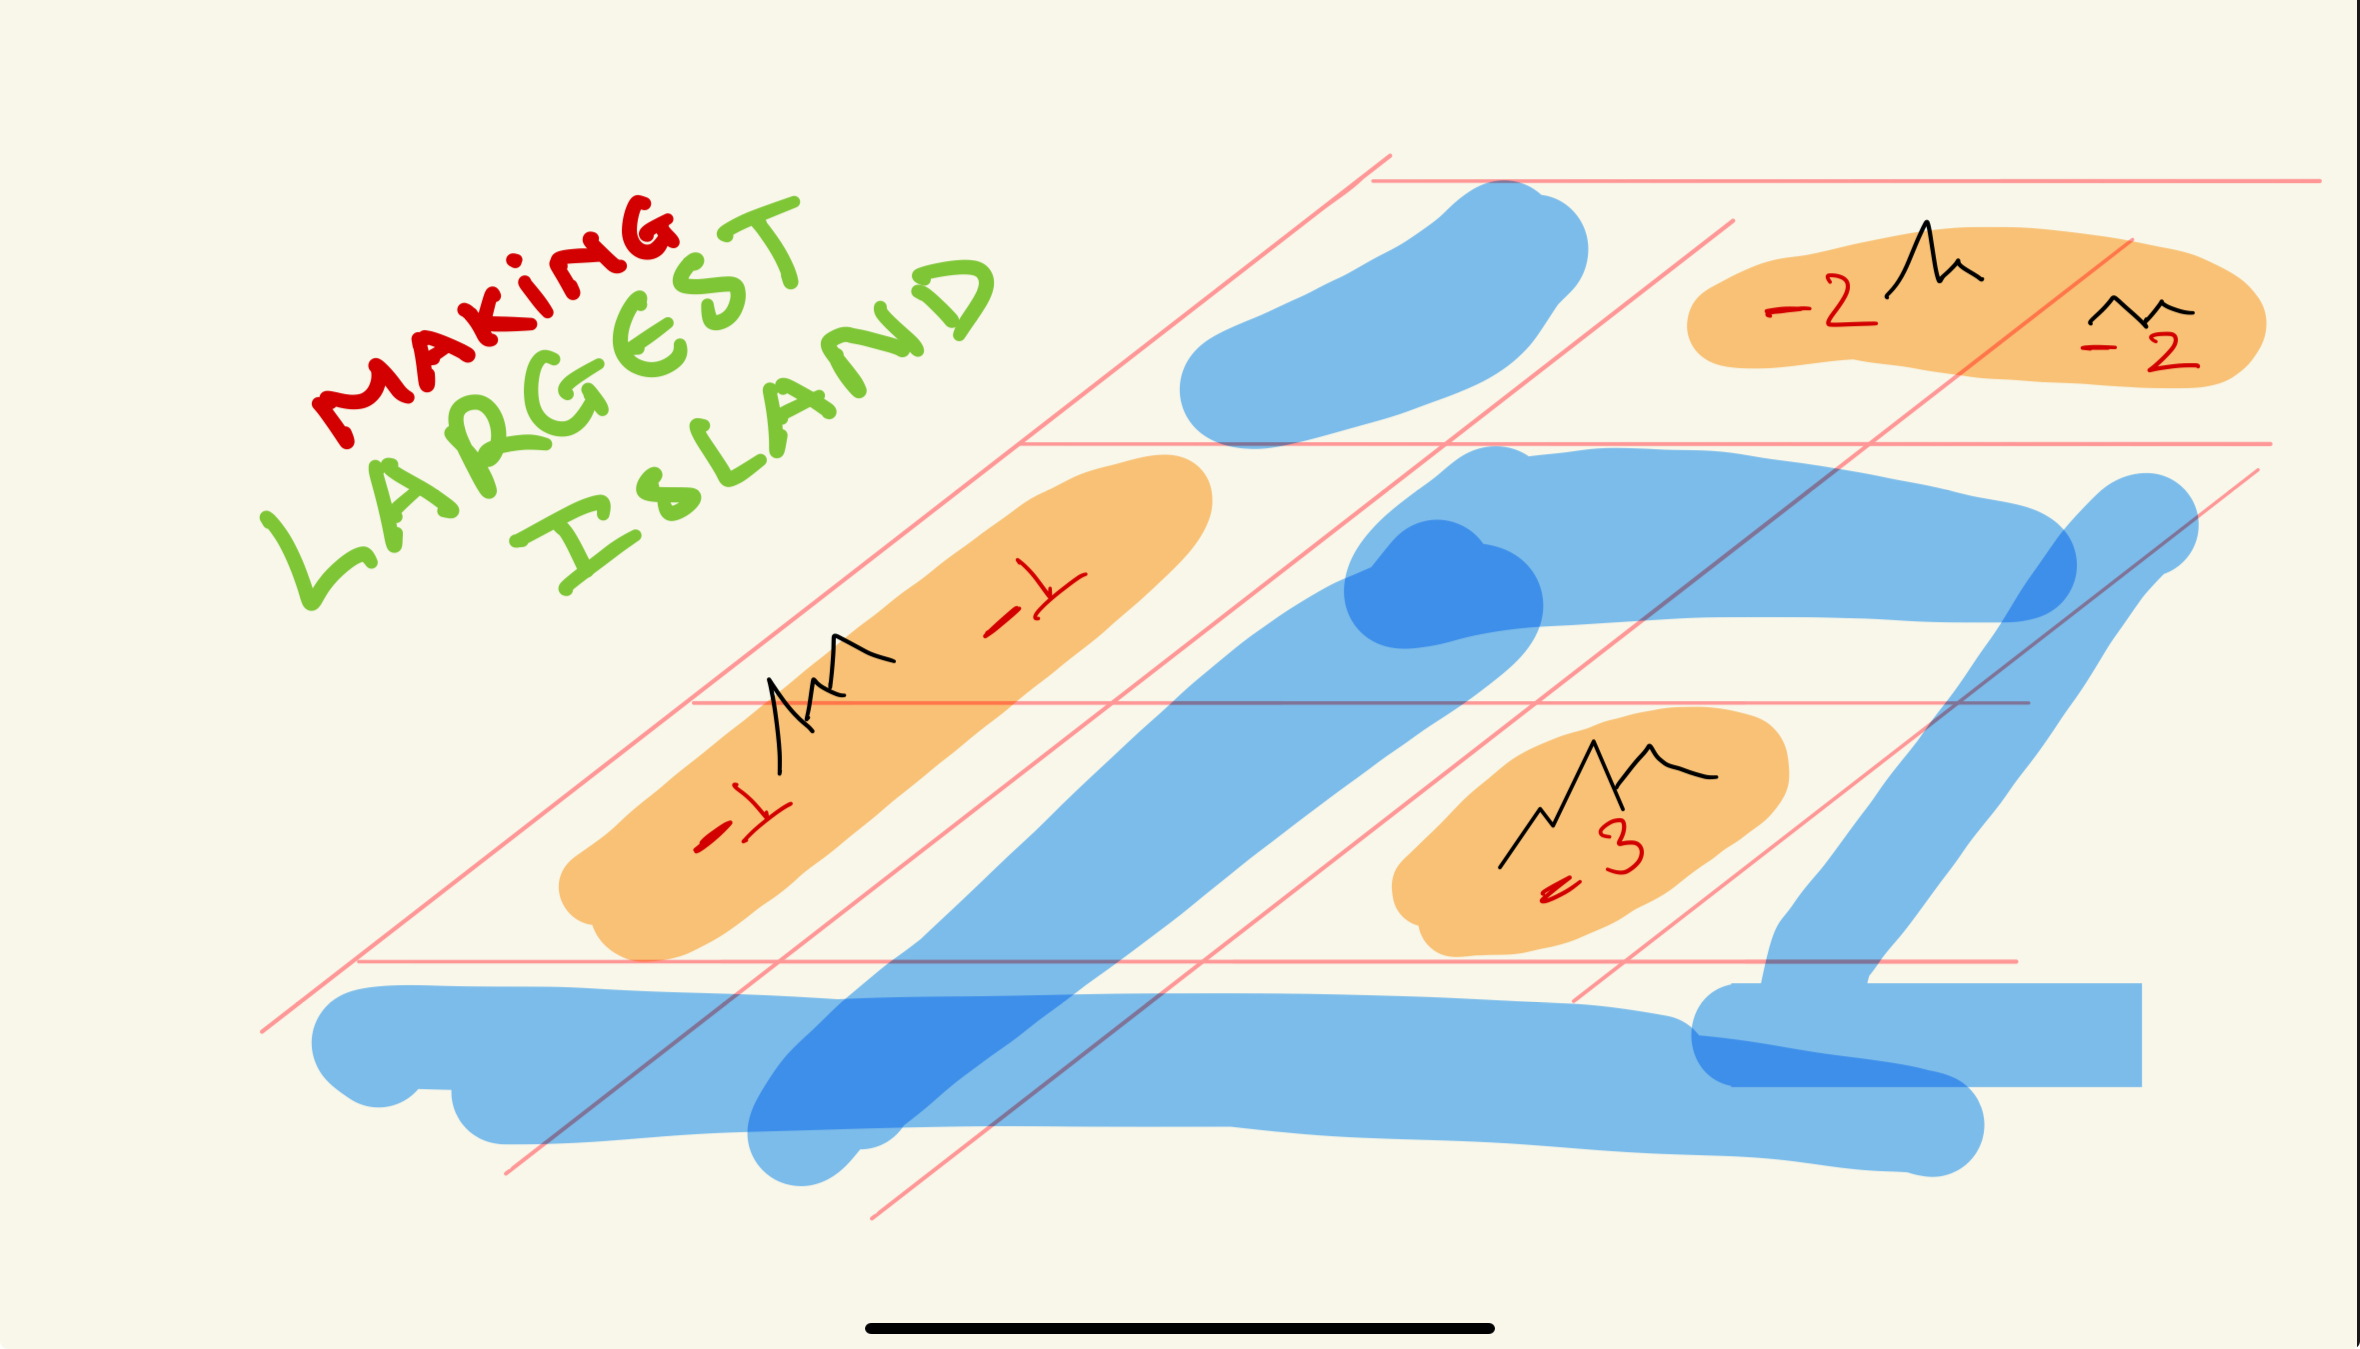 MAKiNG
LARGEST
IsLAND
-2
-2
-1
-1
-3